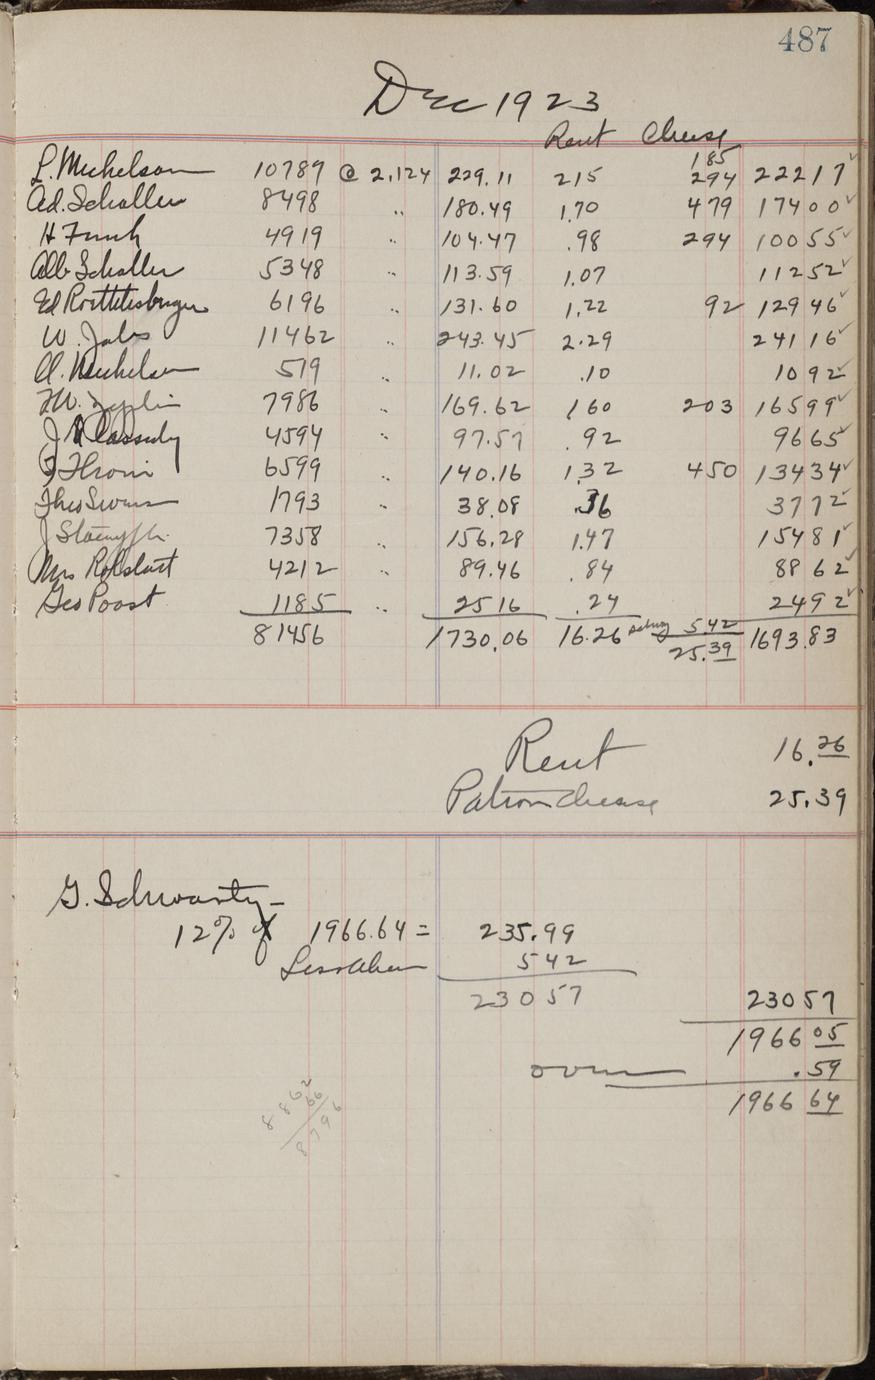 487
Dec 1923
Rent Cheese
185
L. Michelson 10789 @ 2,124 229.11 215 294 22217 ✓
Ad. Schaller 8498 " 180.49 1.70 479 17400 ✓
H Funk 4919 " 104.47 .98 294 10055 ✓
Alb Schaller 5348 " 113.59 1.07 11252 ✓
Ed 6196 " 131.60 1.22 92 12946 ✓
W. 11462 " 243.45 2.29 24116 ✓
A. Michelson 519 " 11.02 .10 1092 ✓
F.W. Zeplin 7986 " 169.62 160 203 16599 ✓
J Cassidy 4594 " 97.57 .92 9665 ✓
6599 " 140.16 1.32 450 13434 ✓
Theo 1793 " 38.08 .36 3772 ✓
J 7358 " 156.28 1.47 15481 ✓
Mrs 4212 " 89.46 .84 8862 ✓
Geo Poast 1185 " 2516 .24 2492 ✓
81456 1730.06 16.26 5.42 1693.83
25.39
Rent 16.26
Patron Cheese 25.39
G. Schwartz -
12% of 1966.64 = 235.99
Less Above 542
23057 23057
1966 05
over .59
1966 64
8862
66
8796